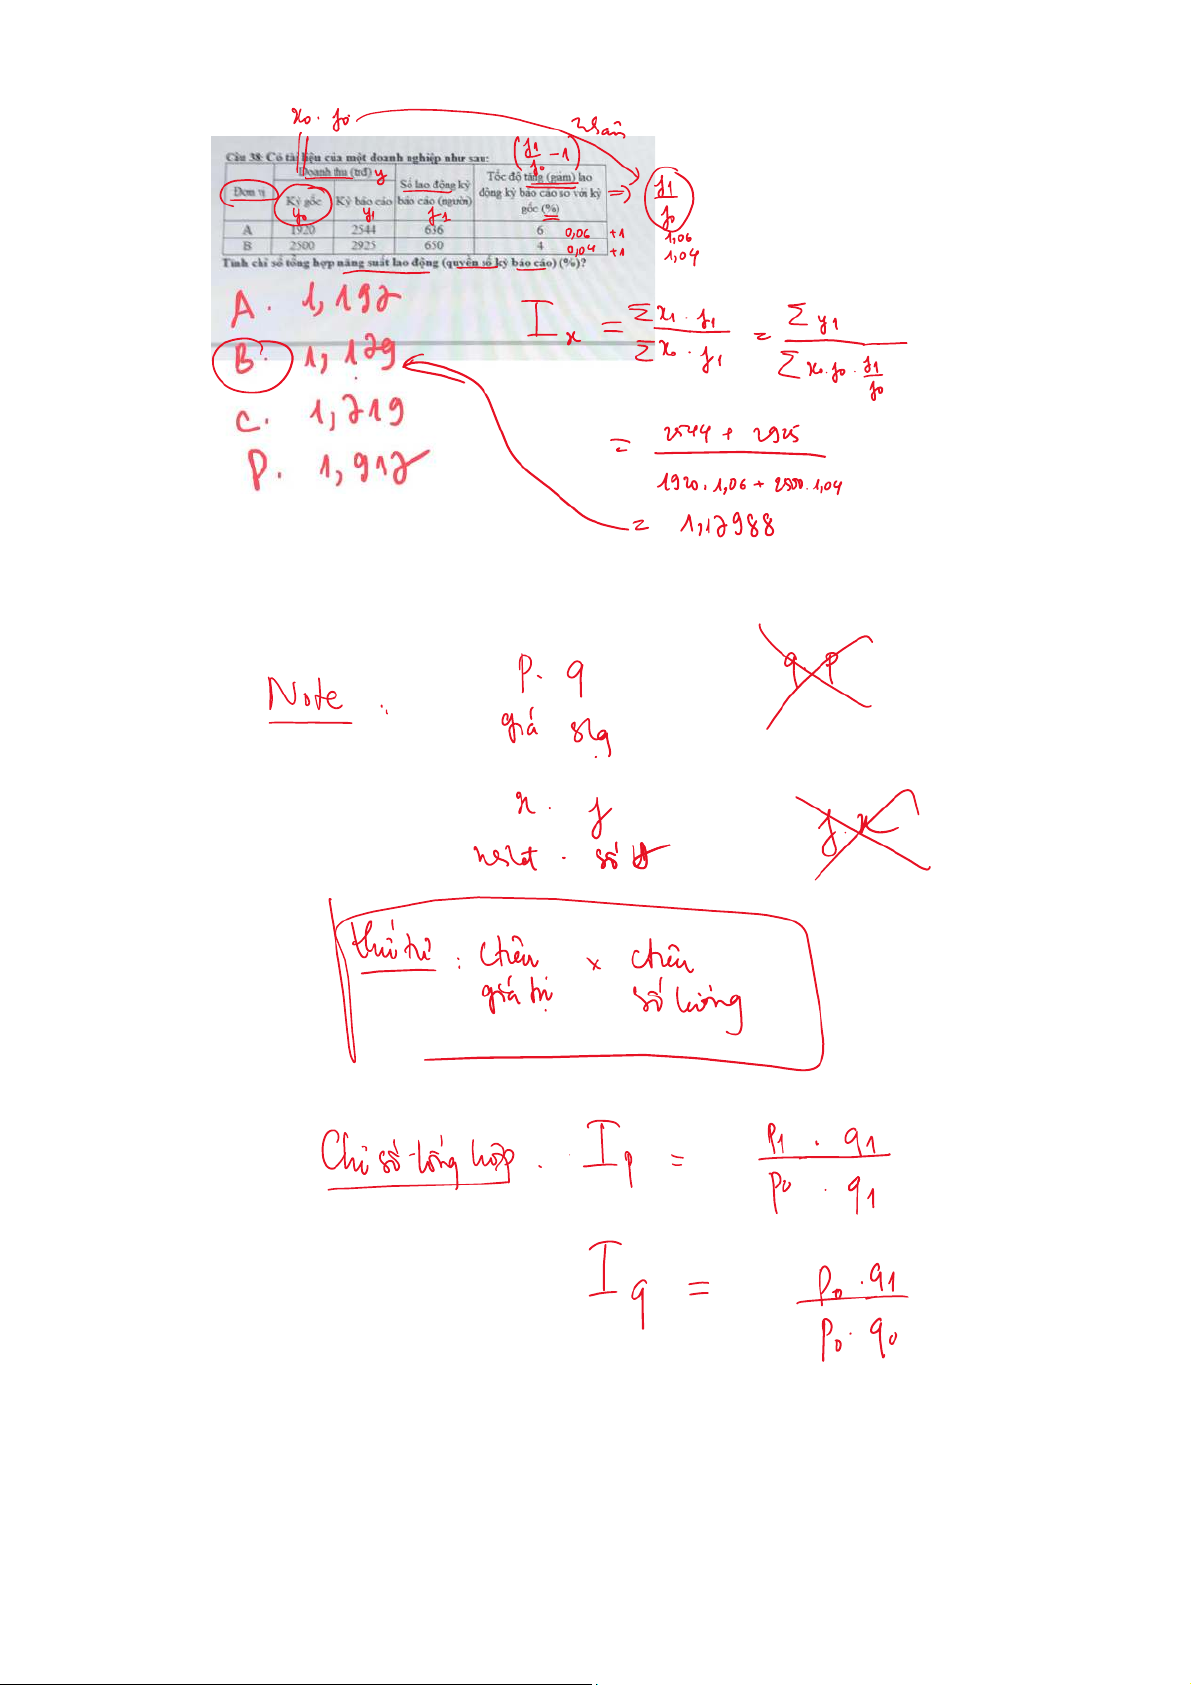 x₀ . f₀
nhân
(f1/f₀ - 1)
Câu 38: Có tài liệu của một doanh nghiệp như sau:
Đơn vị
Doanh thu (trđ) y
Số lao động kỳ báo cáo (người) f1
Tốc độ tăng (giảm) lao động kỳ báo cáo so với kỳ gốc (%)
=> f1/f₀
Kỳ gốc y₀
Kỳ báo cáo y1
A 1920 2544 636 6 0,06 +1 1,06
B 2500 2925 650 4 0,04 +1 1,04
Tính chỉ số tổng hợp năng suất lao động (quyền số kỳ báo cáo) (%)?
A. 1,192
B. 1,129
C. 1,219
D. 1,912
I x = Σ x1 . f1 / Σ x₀ . f1 = Σ y1 / Σ x₀.f₀ . f1/f₀
= 2544 + 2925 / 1920.1,06 + 2500.1,04
= 1,12988
Note :
P. q
q. p
giá slg
x . f
f. x
nslđ . số lđ
thứ tự : chiên × chiên
giá trị số lượng
Chỉ số tổng hợp . I p = p1 . q1 / p₀ . q1
I q = p₀ . q1 / p₀ . q₀